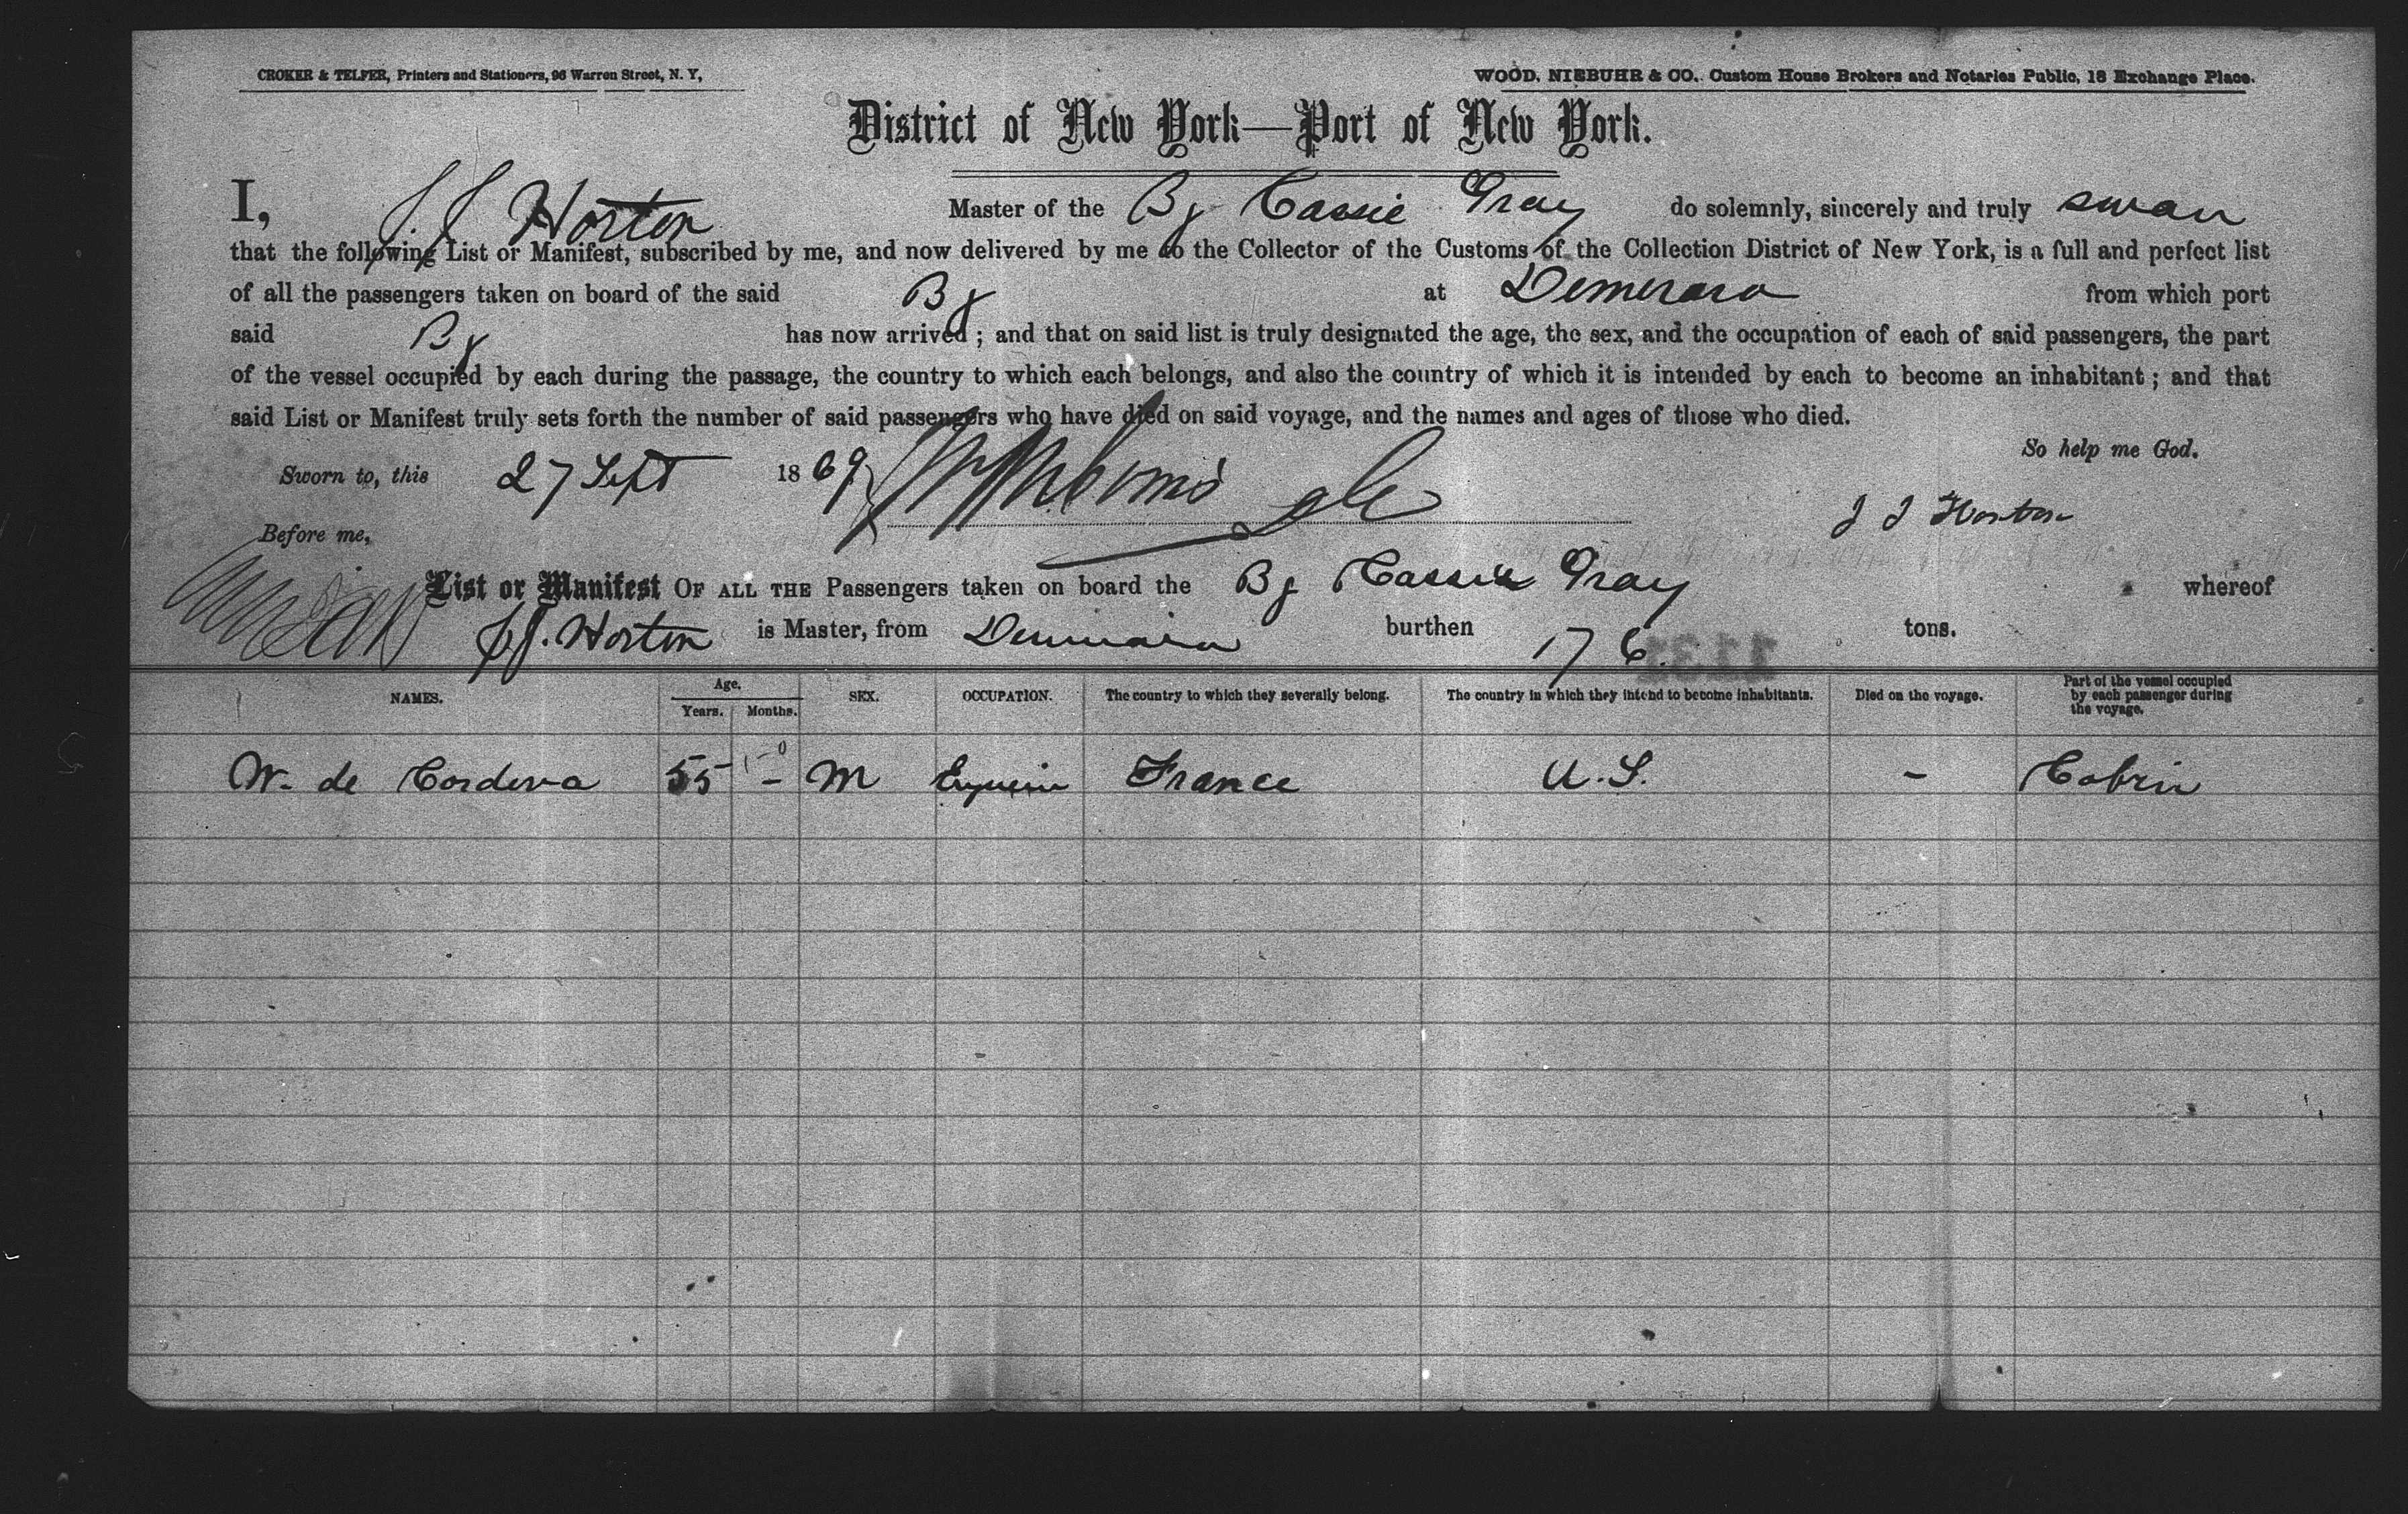 CROKER & TELFER, Printers and Stationers, 96 Warren Street, N. Y,
WOOD, NIEBUHR & CO., Custom House Brokers and Notaries Public, 18 Exchange Place.
District of New York—Port of New York.
I, J J Horton Master of the Bg Cassie Gray do solemnly, sincerely and truly swear
that the following List or Manifest, subscribed by me, and now delivered by me to the Collector of the Customs of the Collection District of New York, is a full and perfect list
of all the passengers taken on board of the said Bg at Demerara from which port
said Bg has now arrived ; and that on said list is truly designated the age, the sex, and the occupation of each of said passengers, the part
of the vessel occupied by each during the passage, the country to which each belongs, and also the country of which it is intended by each to become an inhabitant ; and that
said List or Manifest truly sets forth the number of said passengers who have died on said voyage, and the names and ages of those who died.
So help me God.
Sworn to, this 27 Sept 1869
J J Horton
Before me,
List or Manifest OF ALL THE Passengers taken on board the Bg Cassie Gray whereof
J J. Horton is Master, from Demerara burthen 176 tons.
NAMES. Age. Years. Months. SEX. OCCUPATION. The country to which they severally belong. The country in which they intend to become inhabitants. Died on the voyage. Part of the vessel occupied by each passenger during the voyage.
W. de Cordova 55 - M France U.S. - Cabin